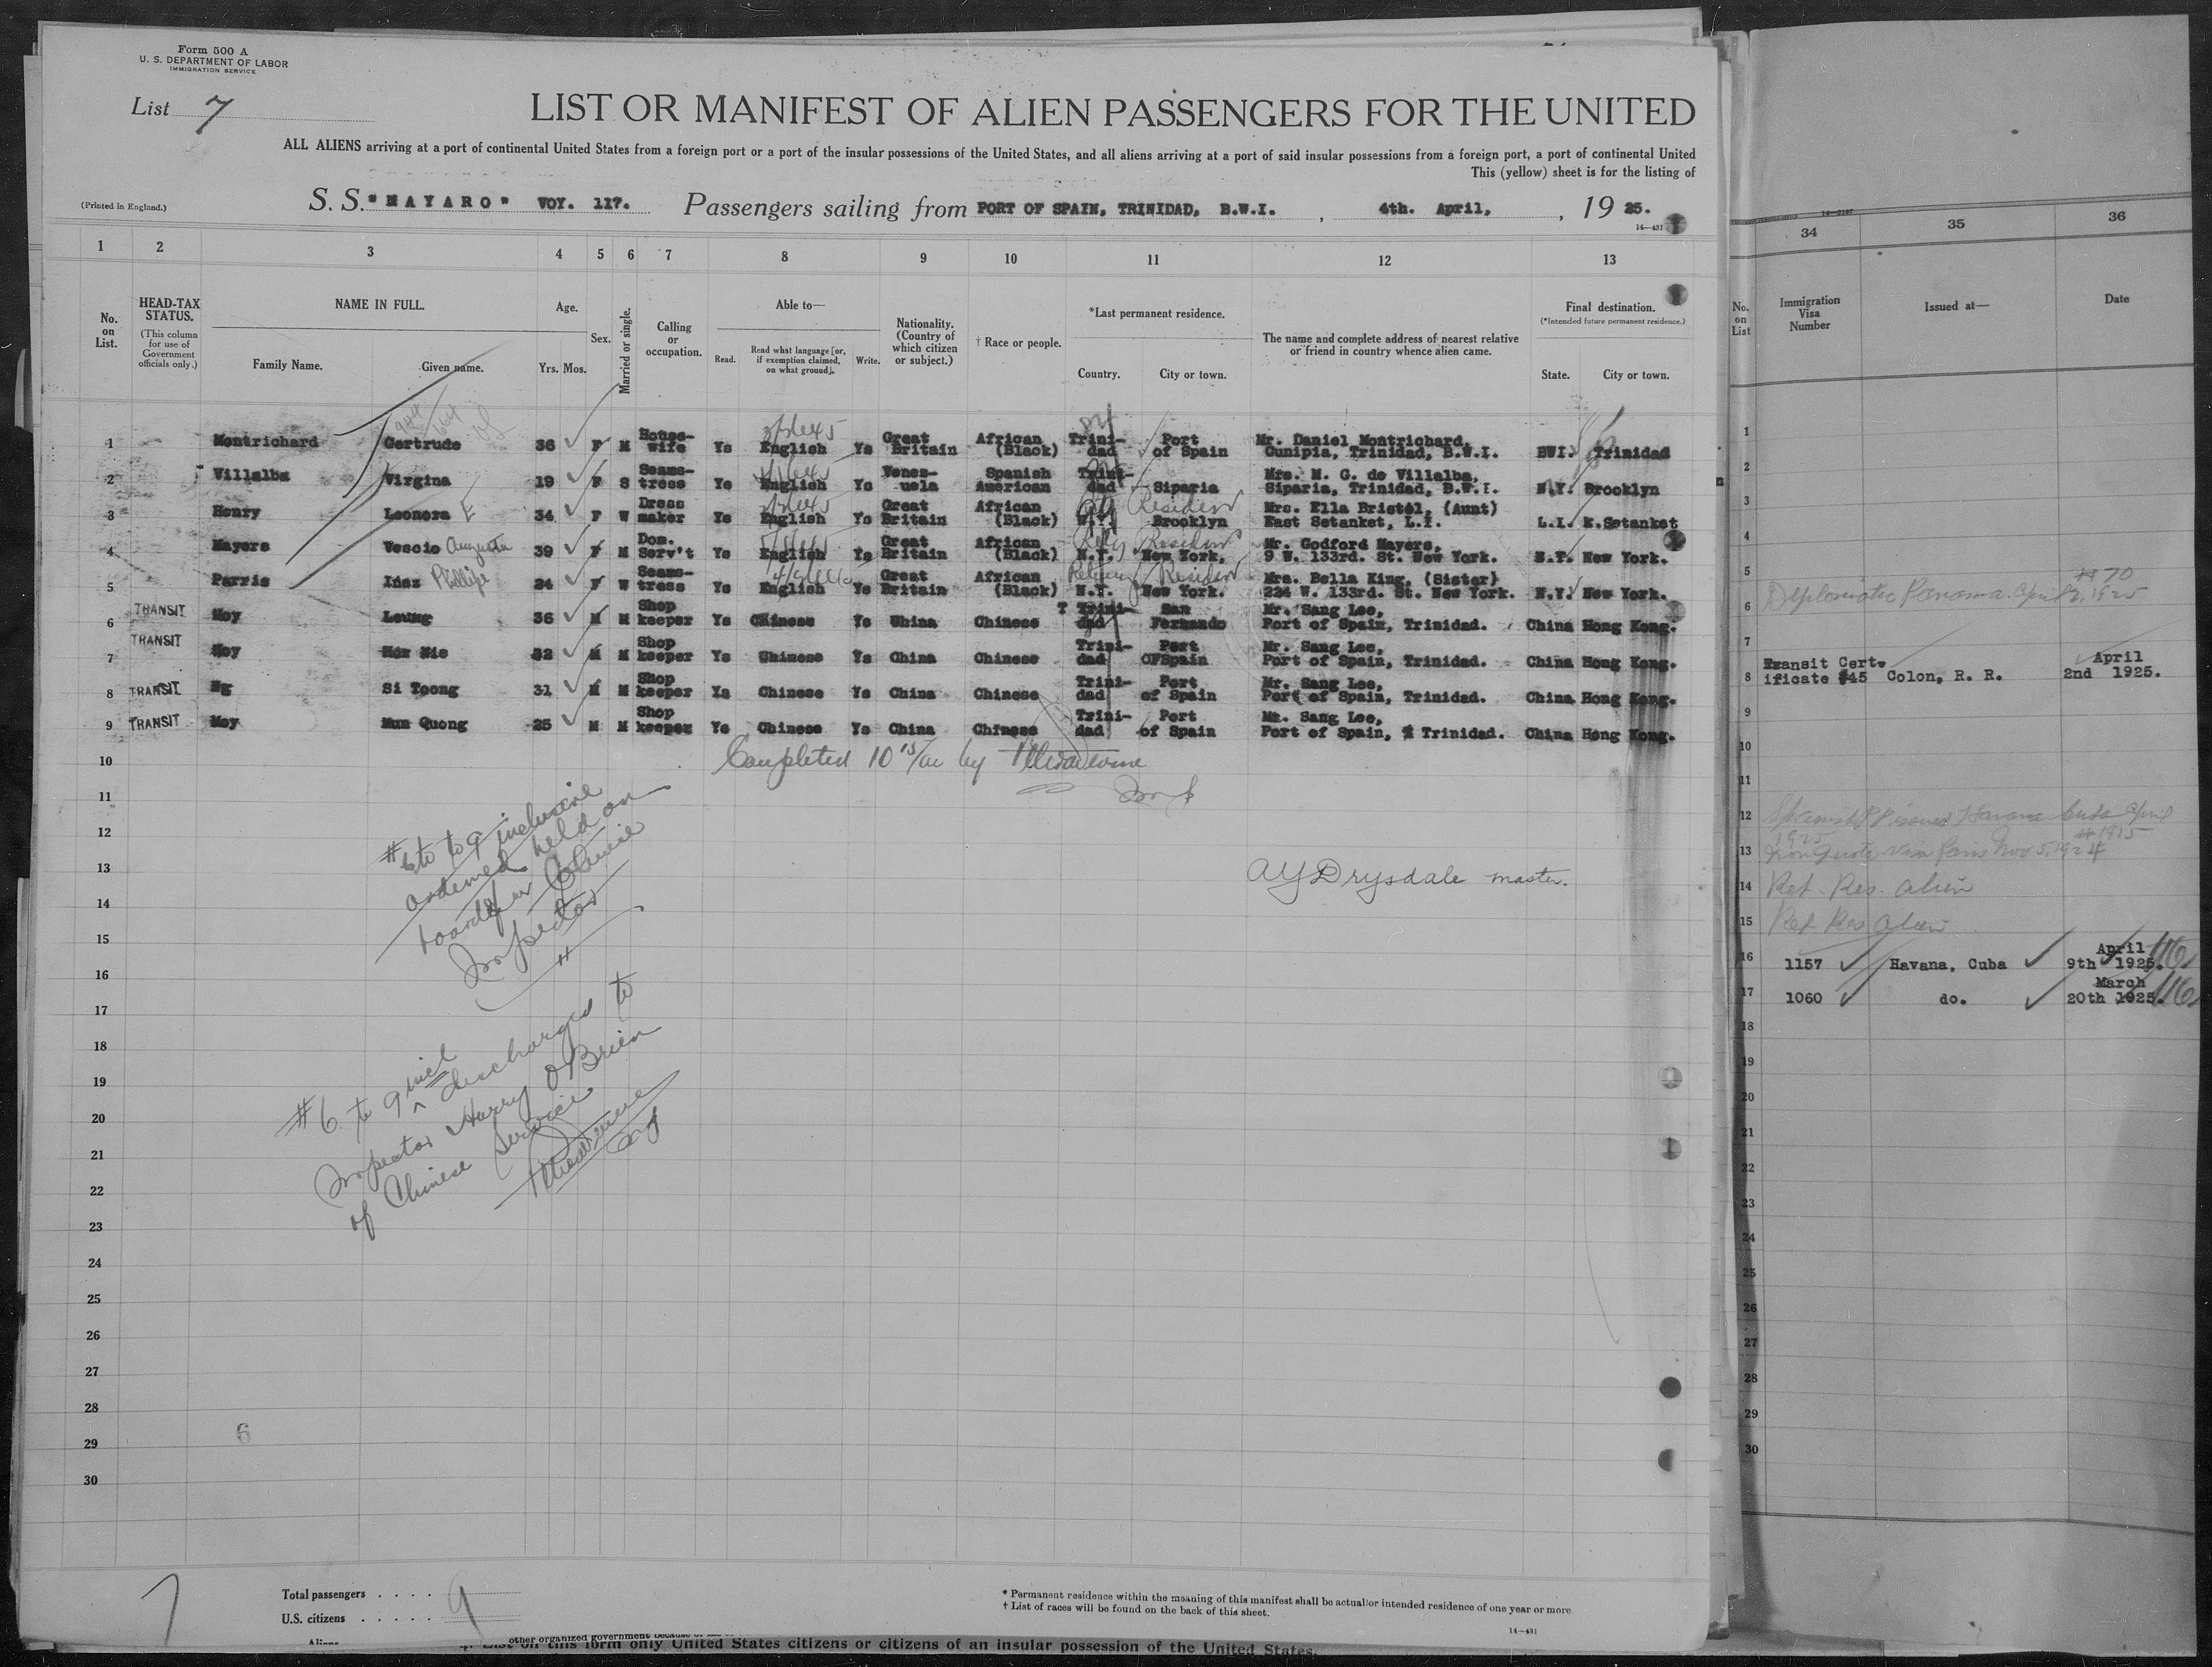 Form 500 A
U. S. DEPARTMENT OF LABOR
IMMIGRATION SERVICE
List 7
LIST OR MANIFEST OF ALIEN PASSENGERS FOR THE UNITED
ALL ALIENS arriving at a port of continental United States from a foreign port or a port of the insular possessions of the United States, and all aliens arriving at a port of said insular possessions from a foreign port, a port of continental United
This (yellow) sheet is for the listing of
(Printed in England.)
S. S. "MAYARO" VOY. 117. Passengers sailing from PORT OF SPAIN, TRINIDAD, B.W.I. , 4th. April, , 19 25.
14—431
1 2 3 4 5 6 7 8 9 10 11 12 13
No. on List.
HEAD-TAX STATUS.
(This column for use of Government officials only.)
NAME IN FULL.
Family Name. Given name.
Age.
Yrs. Mos.
Sex.
Married or single.
Calling or occupation.
Able to—
Read. Read what language [or, if exemption claimed, on what ground]. Write.
Nationality. (Country of which citizen or subject.)
† Race or people.
*Last permanent residence.
Country. City or town.
The name and complete address of nearest relative or friend in country whence alien came.
Final destination.
(*Intended future permanent residence.)
State. City or town.
1 Montrichard Gertrude 36 F M House-wife Ys English Ys Great Britain African (Black) Trini-dad Port of Spain Mr. Daniel Montrichard, Cunipia, Trinidad, B.W.I. BWI. Trinidad
2 Villalba Virgina 19 F S Seams-tress Ys English Ys Venez-uela Spanish American Trini-dad Siparia Mrs. M. G. de Villalba, Siparia, Trinidad, B.W.I. N.Y. Brooklyn
3 Henry Leonora E 34 F W Dress maker Ys English Ys Great Britain African (Black) N.Y. Brooklyn Mrs. Ella Bristol, (Aunt) East Setanket, L.I. L.I. E.Setanket
4 Mayers Vescio Augusta 39 F M Dom. Serv't Ys English Ys Great Britain African (Black) N.Y. New York, Mr. Godford Mayers, 9 W. 133rd. St. New York. N.Y. New York.
5 Parris Inez Phillips 24 F W Seams-tress Ys English Ys Great Britain African (Black) N.Y. New York. Mrs. Bella King, (Sister) 224 W. 133rd. St. New York. N.Y. New York.
6 TRANSIT Moy Leung 36 M M Shop keeper Ys Chinese Ys China Chinese T Trini-dad San Fernando Mr. Sang Lee, Port of Spain, Trinidad. China Hong Kong.
7 TRANSIT Moy 32 M M Shop keeper Ys Chinese Ys China Chinese Trini-dad Port OFSpain Mr. Sang Lee, Port of Spain, Trinidad. China Hong Kong.
8 TRANSIT Ng Si Toong 31 M M Shop keeper Ys Chinese Ys China Chinese Trini-dad Port of Spain Mr. Sang Lee, Port of Spain, Trinidad. China Hong Kong.
9 TRANSIT Moy Mun Quong 25 M M Shop keeper Ys Chinese Ys China Chinese Trini-dad Port of Spain Mr. Sang Lee, Port of Spain, Trinidad. China Hong Kong.
Completed 10 15/am by
Insp
10
11
12
13
14
15
16
17
18
19
20
21
22
23
24
25
26
27
28
29
30
#6 to 9 inclusive
ordered held on
board for Chinese
Inspector
AY Drysdale master.
#6 to 9 incl discharged to
Inspector Harry O'Brien
of Chinese Service
6
7
Total passengers . . . . 9
U.S. citizens . . . . .
Aliens
* Permanent residence within the meaning of this manifest shall be actual or intended residence of one year or more
† List of races will be found on the back of this sheet.
14—431
other organized government because of
4. List on this form only United States citizens or citizens of an insular possession of the United States.
34 35 36
No. on List
Immigration Visa Number
Issued at—
Date
1
2
3
4
5
6 Diplomatic Panama April 2, 1925 #70
7
8 Transit Cert-ificate #45 Colon, R. R. April 2nd 1925.
9
10
11
12 Spanish PP issued Havana Cuba April 1925
13 Non Quota visa Paris Nov 5, 1924 #1915
14 Ret. Res. Alien
15 Ret Res Alien
16 1157 Havana, Cuba April 9th 1925.
17 1060 do. March 20th 1925.
18
19
20
21
22
23
24
25
26
27
28
29
30